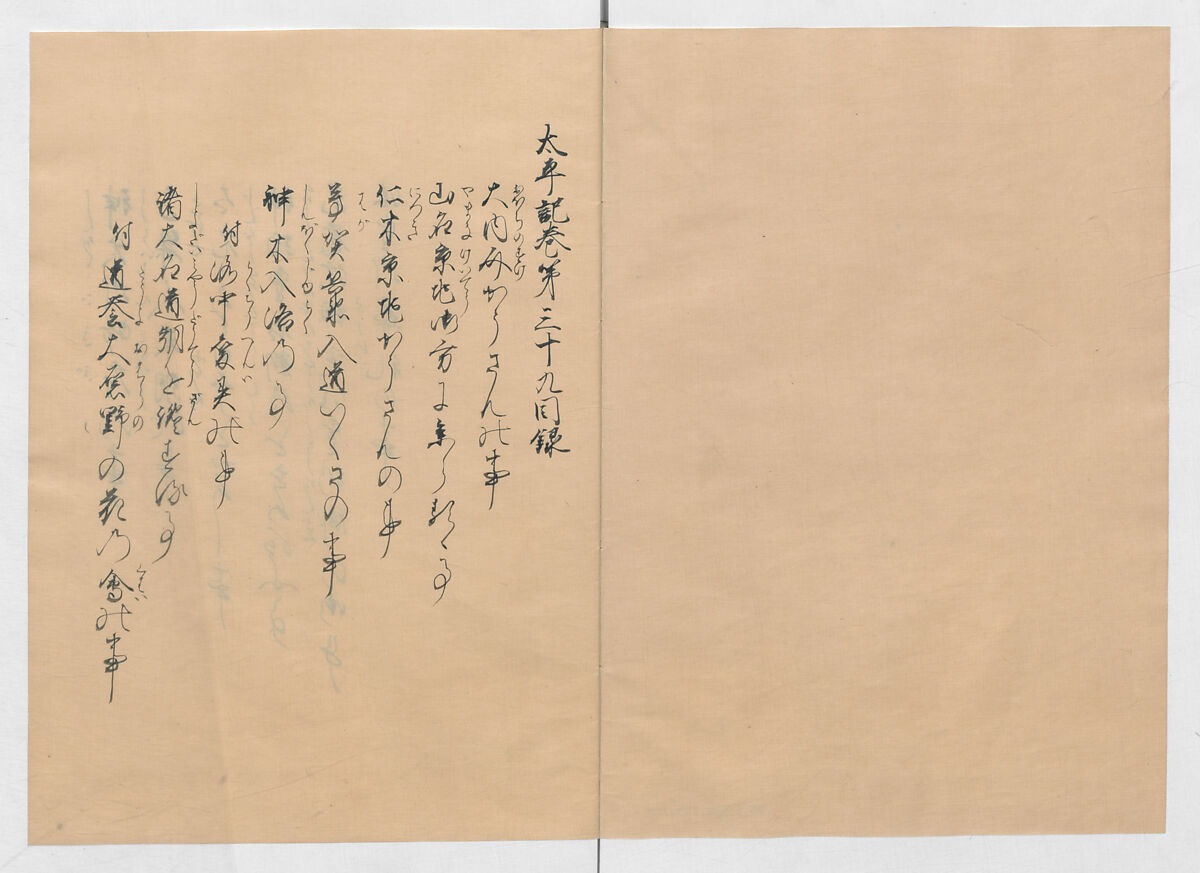 太平記巻第三十九目録
大内介かうさんの事
山名京兆御方に参らるゝ事
仁木京兆かうさんの事
芳賀兵衛入道いくさの事
神木入洛の事
付洛中変異の事
諸大名道朝を讒する事
付道誉大原野の花の会の事